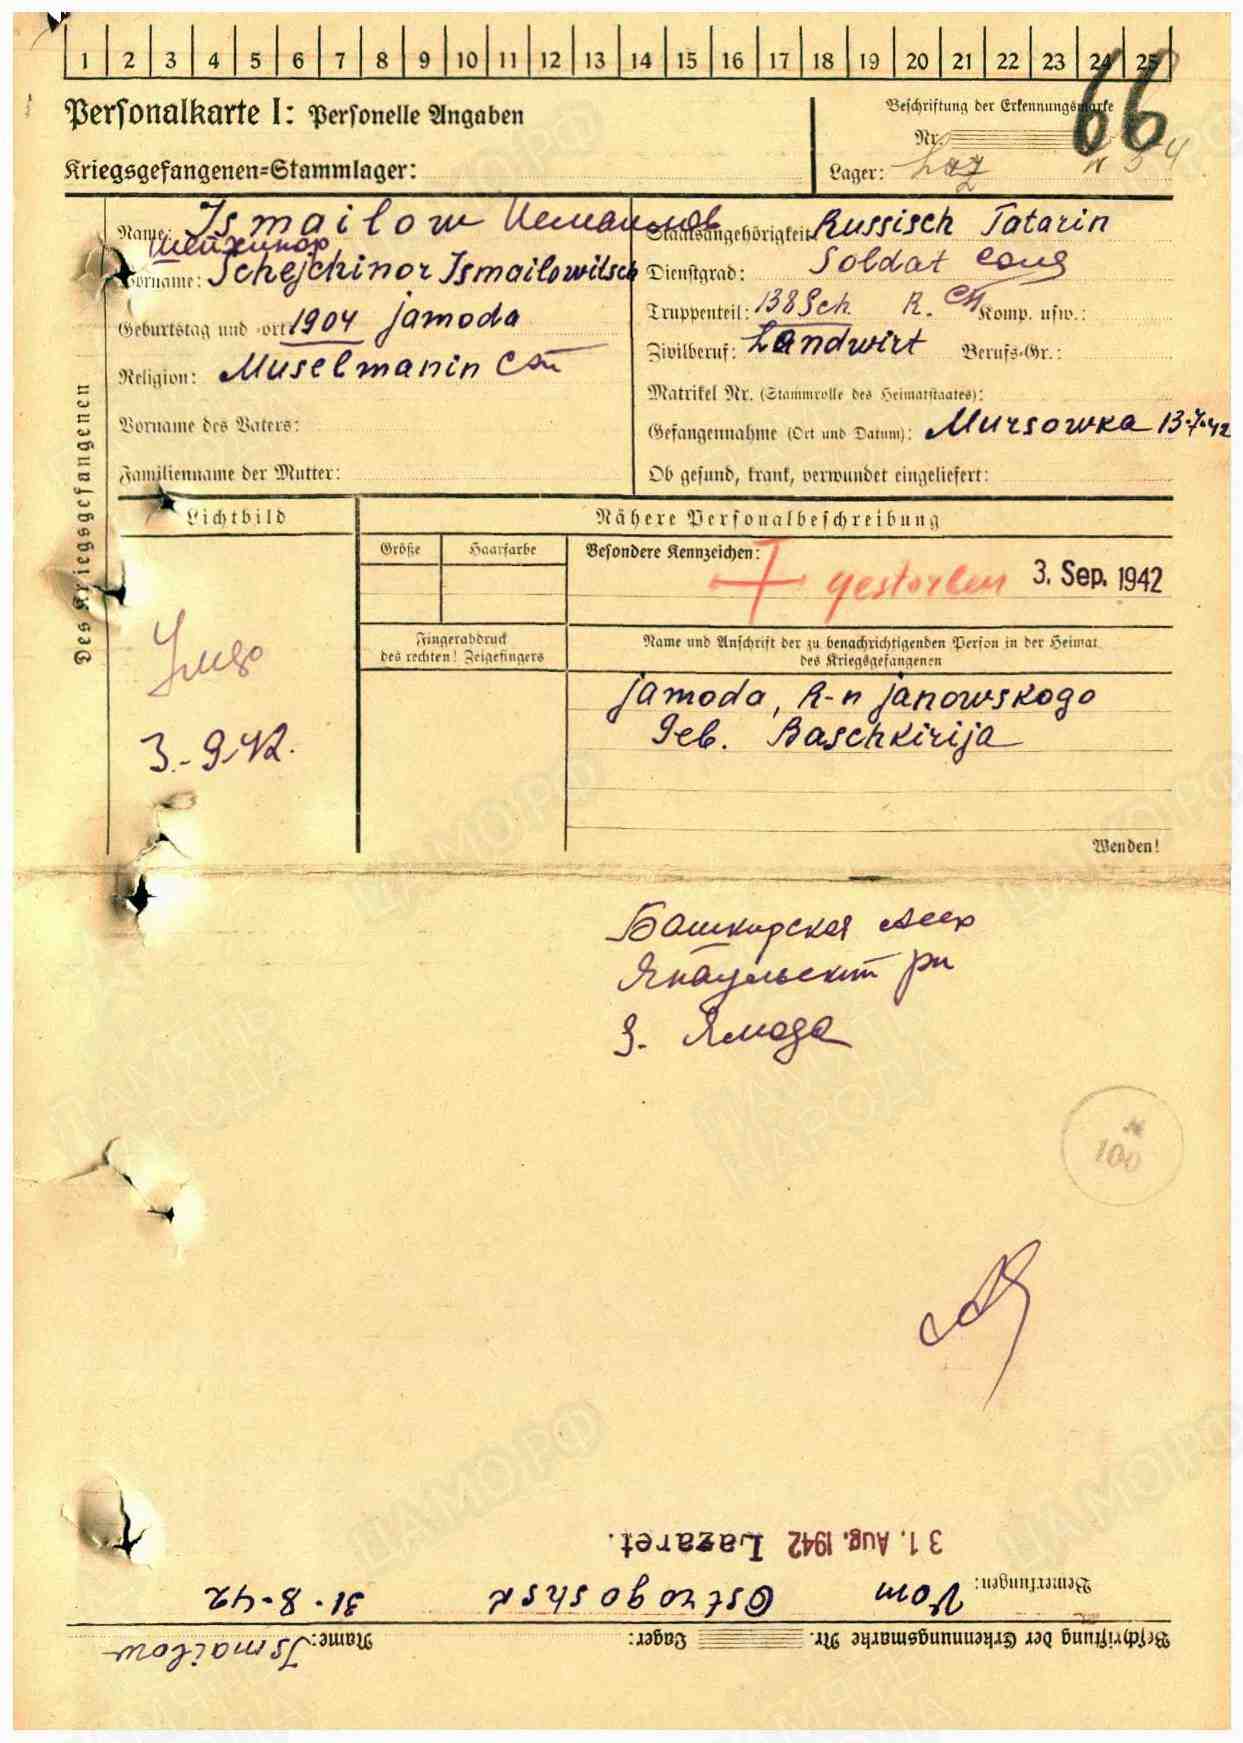 1 2 3 4 5 6 7 8 9 10 11 12 13 14 15 16 17 18 19 20 21 22 23 24 25
66
Personalkarte I: Personelle Angaben
Beschriftung der Erkennungsmarke
Nr.
Kriegsgefangenen-Stammlager:
Lager: Laz
Des Kriegsgefangenen
Name: Ismailow Исмаилов
Шейхинор
Vorname: Schejchinor Ismailowitsch
Geburtstag und -ort 1904 Jamoda
Religion: Muselmanin
Vorname des Vaters:
Familienname der Mutter:
Staatsangehörigkeit: Russisch Tatarin
Dienstgrad: Soldat солд
Truppenteil: 138 Sch. R. СП Komp. usw.:
Zivilberuf: Landwirt Berufs-Gr.:
Matrikel Nr. (Stammrolle des Heimatstaates):
Gefangennahme (Ort und Datum): Mursowka 13.7.42
Ob gesund, krank, verwundet eingeliefert:
Lichtbild
Nähere Personalbeschreibung
Größe
Haarfarbe
Besondere Kennzeichen:
gestorben 3. Sep. 1942
Fingerabdruck
des rechten! Zeigefingers
Name und Anschrift der zu benachrichtigenden Person in der Heimat
des Kriegsgefangenen
Jamoda, R-n Janowskogo
Geb. Baschkirija
3.-9.42.
Wenden!
Башкирская Асср
Янаульский рн
д. Ямода
100
31. Aug. 1942 Lazaret.
Bemerkungen: Vom Ostrogoshsk 31.8.42
Beschriftung der Erkennungsmarke Nr. Lager: Name: Ismailow
ПАМЯТЬ НАРОДА
ЦАМО РФ